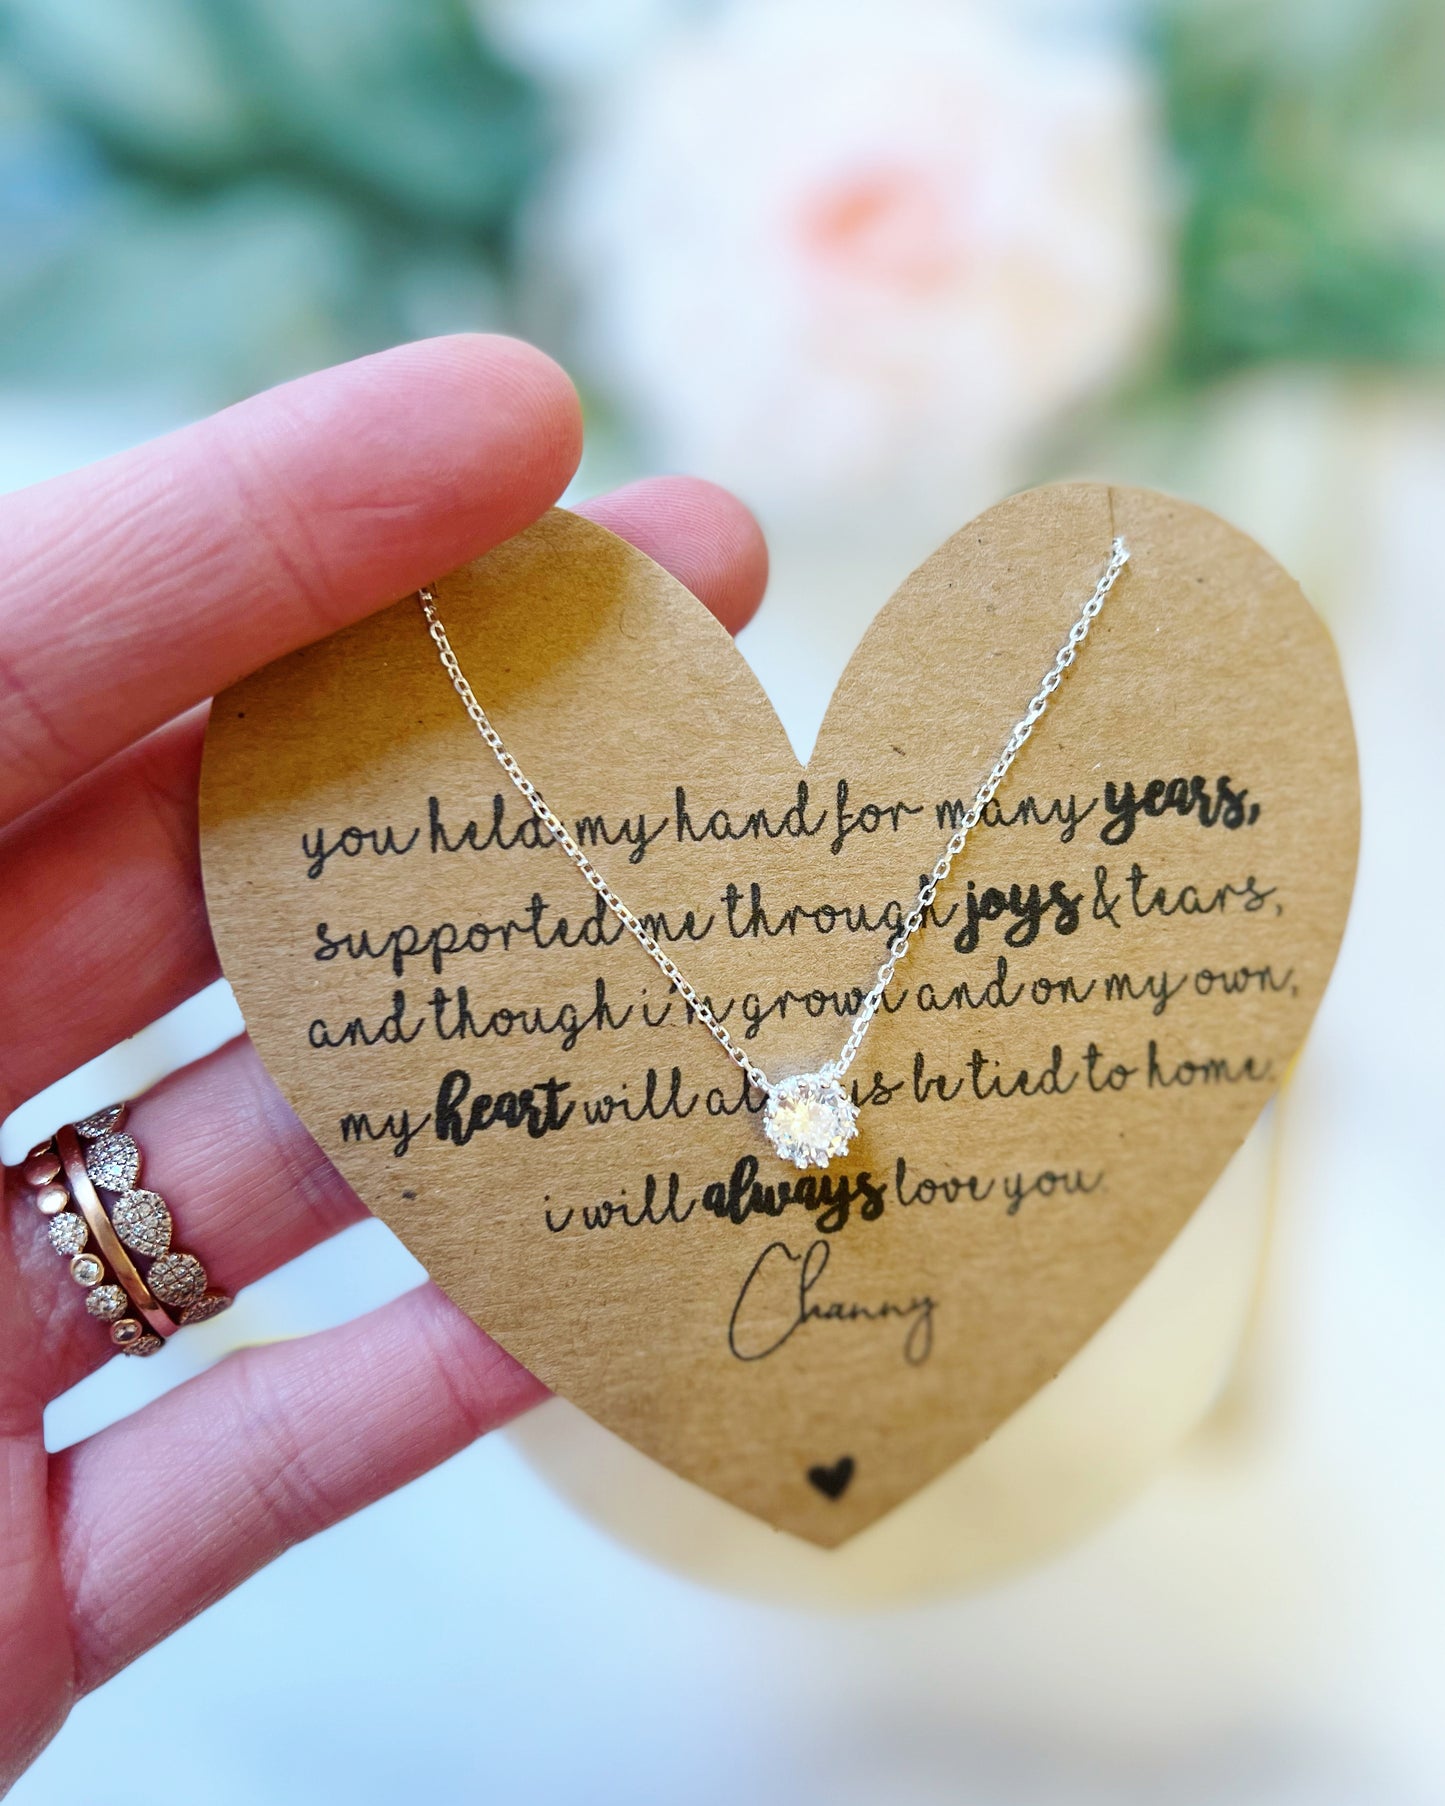 you held my hand for many years,
supported me through joys & tears,
and though i'm grown and on my own,
my heart will always be tied to home.
i will always love you.
Channy